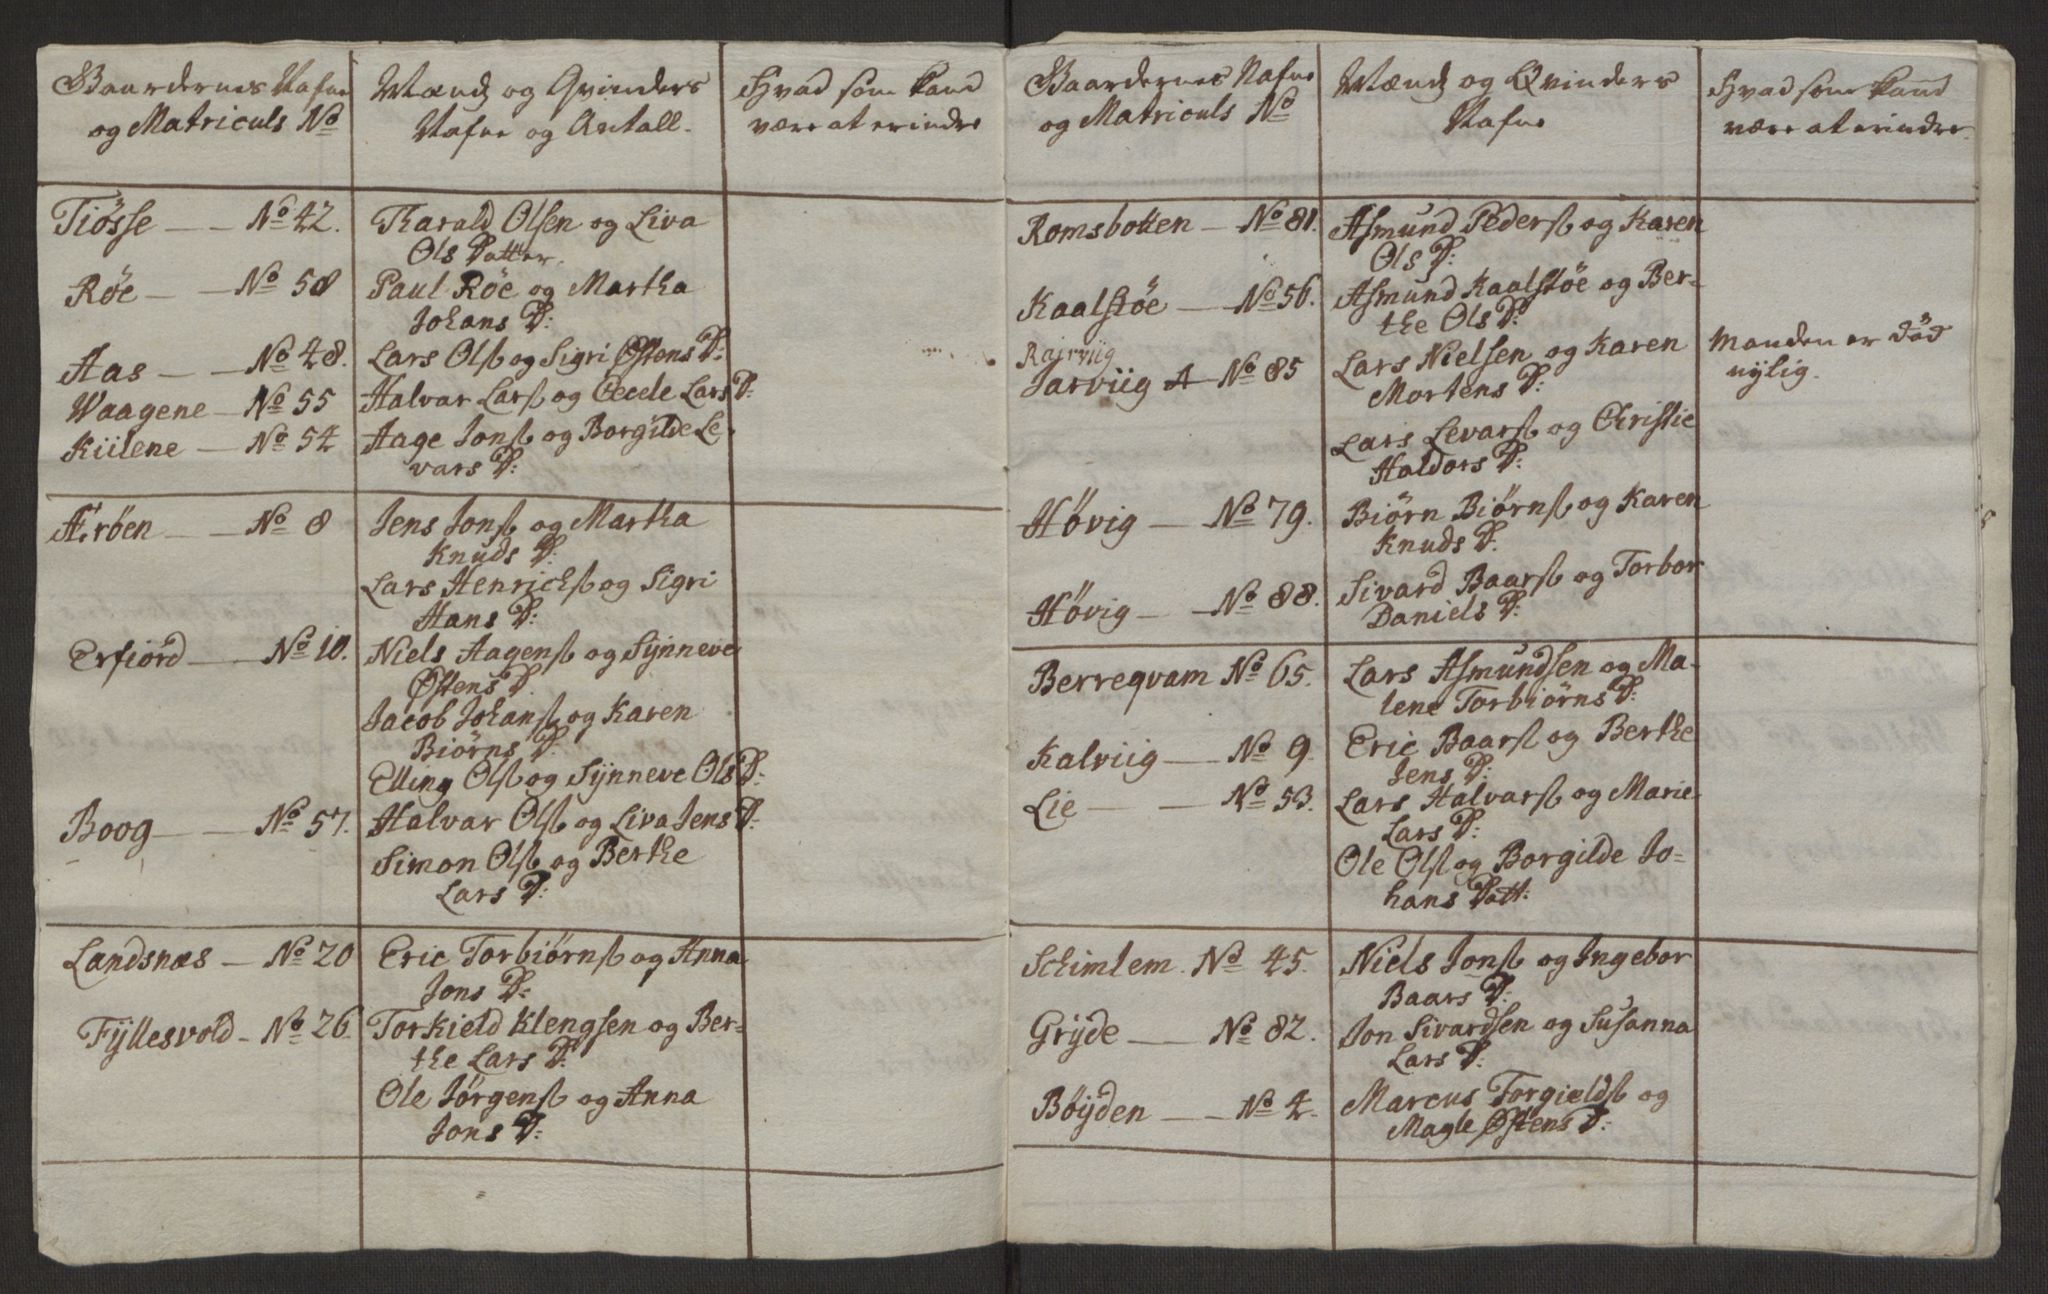 Gaardernes Nafne
og Matriculs No
Mænds og Qvinders
Nafne og Antall.
Hvad som kand
være at erindre
Tiösse No 42. Tharald Olsen og Liva
Ols Datter.
Röe No 58 Paul Röe og Martha
Johans D:
Aas No 48. Lars Ols og Sigri Østens D:
Waagene No 55 Halvar Lars og Cecele Lars D:
Kiilene No 54 Aage Jons og Borgilde Le
vars D:
Æröen No 8 Jens Jons og Martha
Knuds D:
Lars Henrichs og Sigri
Hans D:
Erfiord No 10. Niels Aagens og Synneve
Østens D.
Jacob Johans og Karen
Biörns D:
Elling Ols og Synneve Ols D:
Boog No 57. Halvar Ols og Liva Jens D:
Simon Ols og Berthe
Lars D:
Landsnæs No 20 Eric Torbiörns og Anna
Jons D:
Fyllesvold No 26 Torkield Klengsen og Ber-
the Lars D:
Ole Jörgens og Anna
Jons D:
Gaardernes Nafne
og Matriculs No
Mænds og Qvinders
Nafne
Hvad som kand
være at erindre.
Romsbotten No 81. Asmund Peders og Karen
Ols D:
Kaalstöe No 56. Asmund Kaalstöe og Ber-
the Ols D:
Jarviig A No 85 Lars Nielsen og Karen
Mortens D:
Manden er död
nylig.
Lars Levars og Christie
Haldors D:
Hövig No 79. Biörn Biörns og Karen
Knuds D:
Hövig No 88. Sivard Baars og Torbor
Daniels D:
Berreqvam No 65. Lars Asmundsen og Ma-
lene Torbiörns D:
Kalviig No 9. Eric Baars og Berthe
Jens D:
Lie No 53. Lars Halvars og Marie
Lars D:
Ole Ols og Borgilde Jo=
hans Datt:
Schimlem No 45. Niels Jons og Ingebor
Baars D:
Gryde No 82. Jon Sivardsen og Susanna
Lars D:
Böyden No 4. Marcus Torgields og
Magle Østens D: